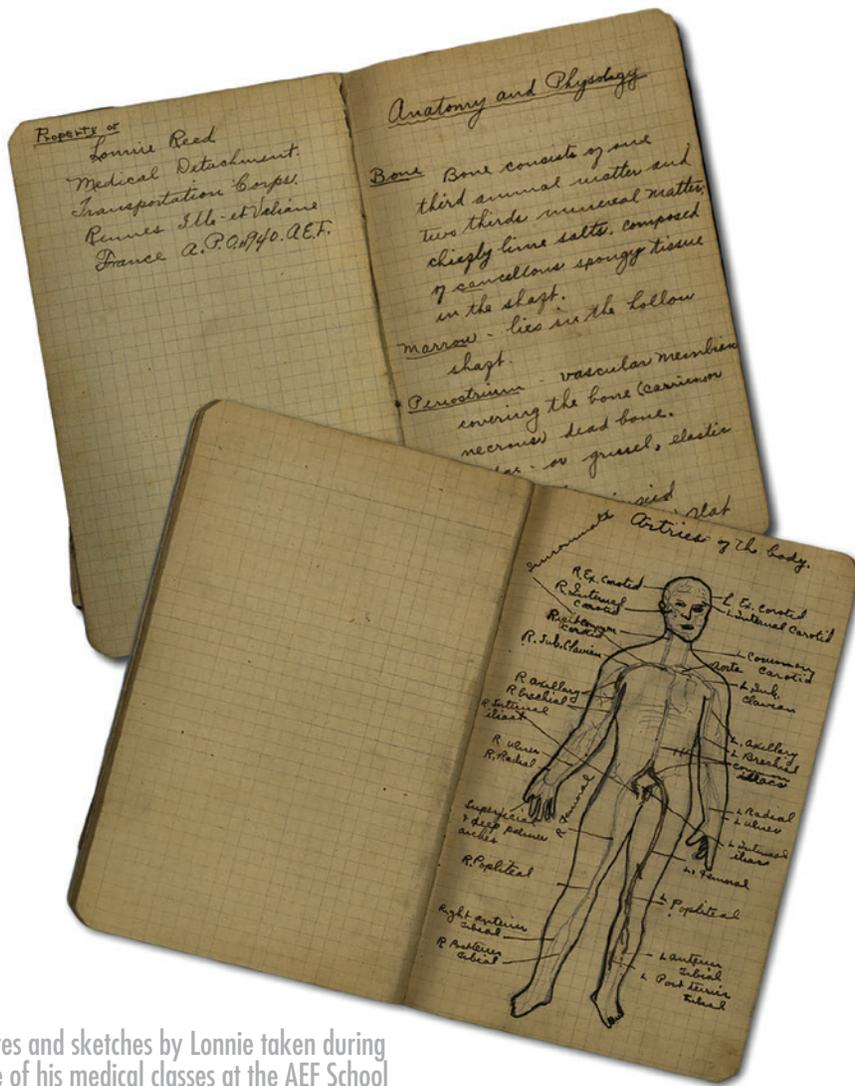 Property of
Lonnie Reed
Medical Detachment.
Transportation Corps.
Rennes Ille-et-Valiane
France A.P.O. 940. A.E.F.
Anatomy and Physology
Bone Bone consists of one
third animal matter and
two thirds minereal matter,
chiefly lime salts. composed
of cancellous spongy tissue
in the shaft.
Marrow - lies in the hollow
shaft.
Periostrium - vascular membrane
covering the bone (carries or
necrouse) dead bone.
- or grissel, elastic
flat
Artries of the body.
R. Ex. Coroted
R. Internal
Corotid
R. Common
Corotid
R. Sub. Clavian
R Axillary
R brachial
R. Internal
iliast
R ulner
R. Radial
Superficial
& deep palmer
arches
R Femoral
R. Popliteal
Right anterior
tibial
R Posterior
tibial
L Ex. Coroted
L. Internal Carotid
L Common
Carotid
Aorta
L. Sub.
Clavean
L. Axillary
L. Brachial
Common
illacs
L Radial
L ulner
L Internal
iliacs
L. Femoral
L. Popliteal
L anterior
tibial
L Post terior
tibial
es and sketches by Lonnie taken during
e of his medical classes at the AEF School